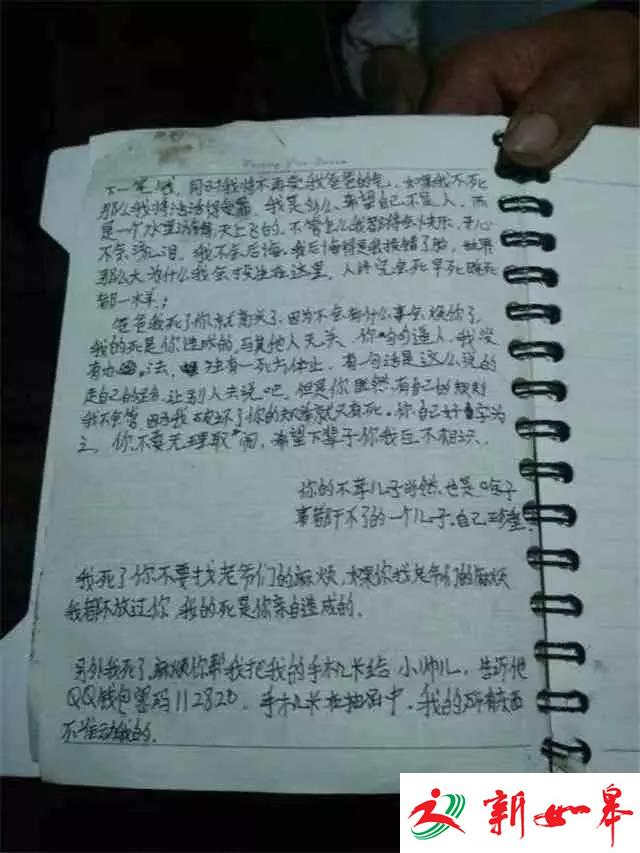 下一笔钱,同时我将不再受我爸爸的气,如果我不死
那么我将活活得受罪,我是多么希望自己不是人,而
是一个水里游得天上飞的,不管怎么我都得会快乐,开心
不会流泪,我不会后悔,我后悔得是我投错了胎,世界
那么大为什么我会投生在这里,人终究会死早死晚死
都一样;
爸爸我死了你就高兴了,因为不会有什么事会烦你了,
我的死是你造成的,与其他人无关,你句句逼人,我没
有办法,独有一死为休止,有一句话是这么说的
走自己的路,让别人去说吧,但是你既然有自己的规则
我不会管,因为我破坏了你的规则就只有死。你自己好自为
之,你不要无理取闹,希望下辈子你我互不相识.
你的不孝儿子当然也是啥子
事都干不了的一个儿子,自己珍重
我死了你不要找老爷们的麻烦,如果你找老爷们的麻烦
我都不放过你,我的死是你亲自造成的.
另外我死了,麻烦你帮我把我的手机卡给小帅儿,告诉他
QQ钱包密码112820,手机卡在抽屉中,我的所有东西
不准动我的.
新如皋